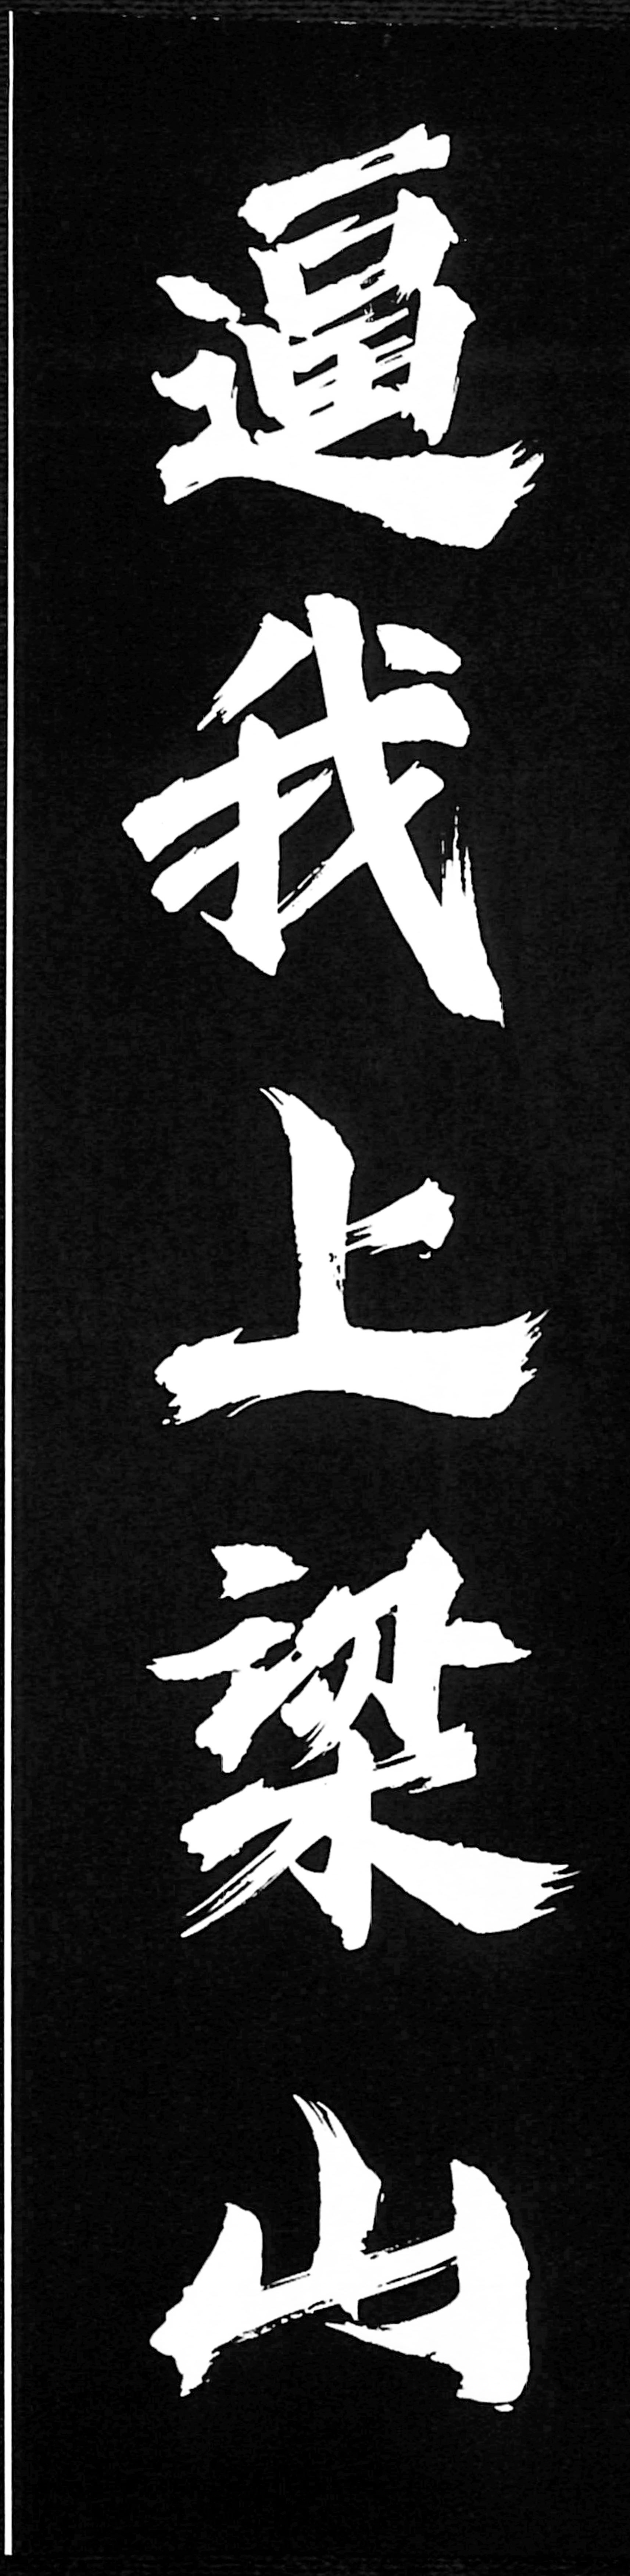 逼我上梁山